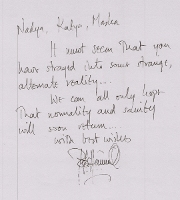 Nadya, Katya, Masha
It must seem that you
have strayed into some strange,
alternate reality...
We can all only hope
That normality and sanity
will soon return...
with best wishes